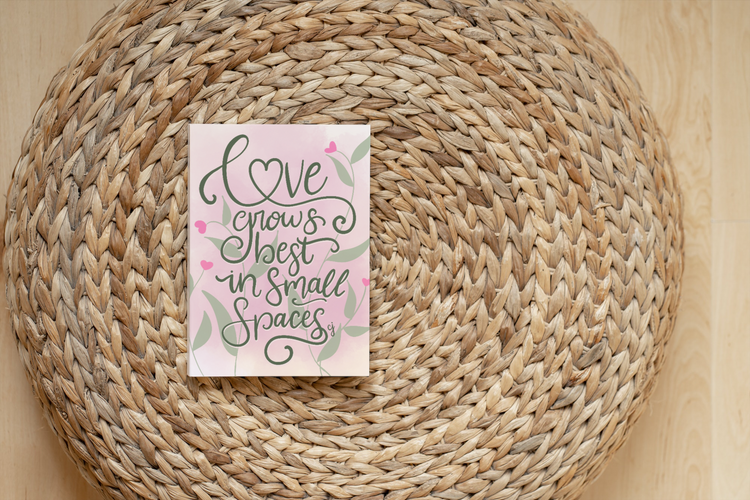 Love
grows
best
in small
Spaces
cj